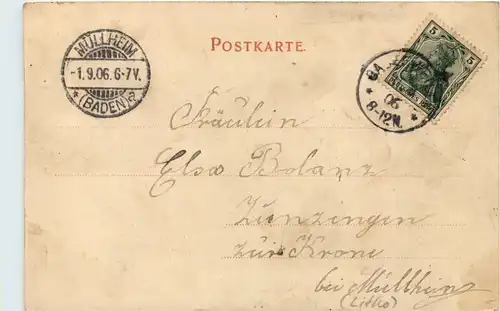 POSTKARTE.
MÜLLHEIM
-1.9.06.6-7V.
* (BADEN) a
5 5
BA
06
8-12N.
Fräulein
Elsa Bolanz
Zunzingen
zur Krone
bei Müllheim
(Litho)